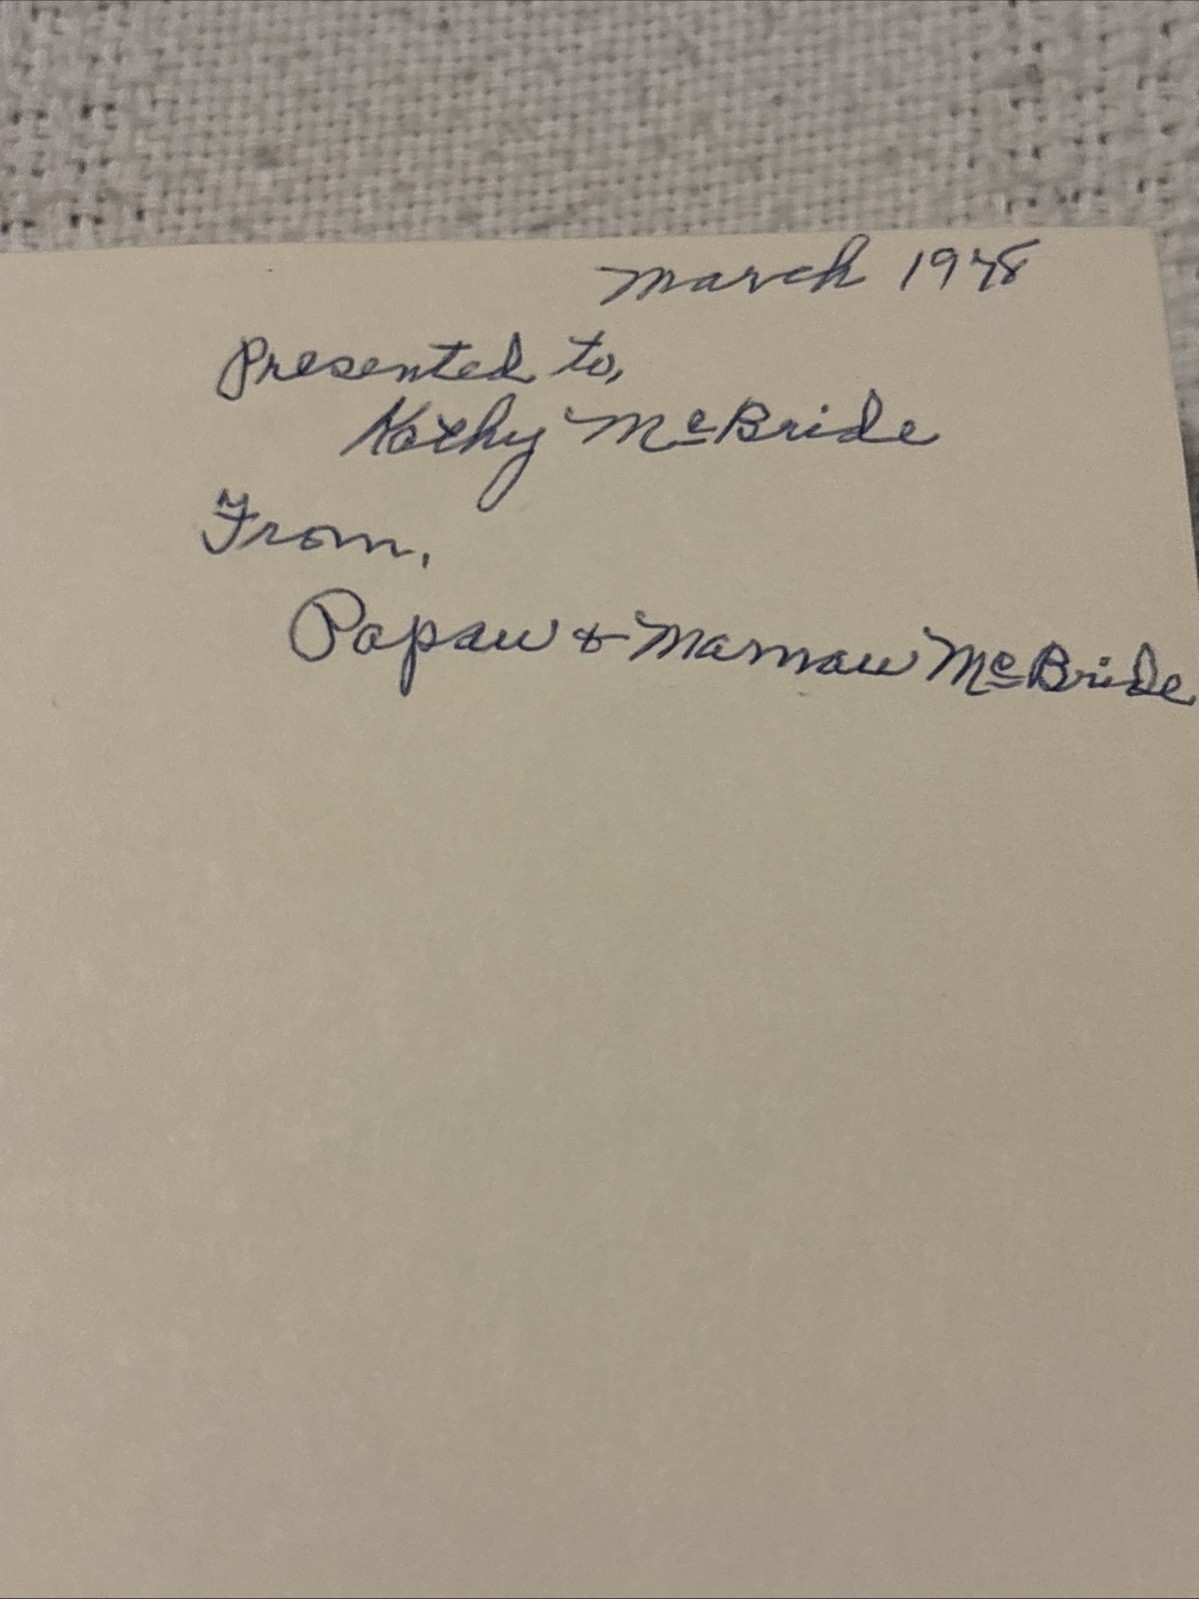 March 1978
Presented to,
Kathy McBride
From,
Papaw & Mamaw McBride